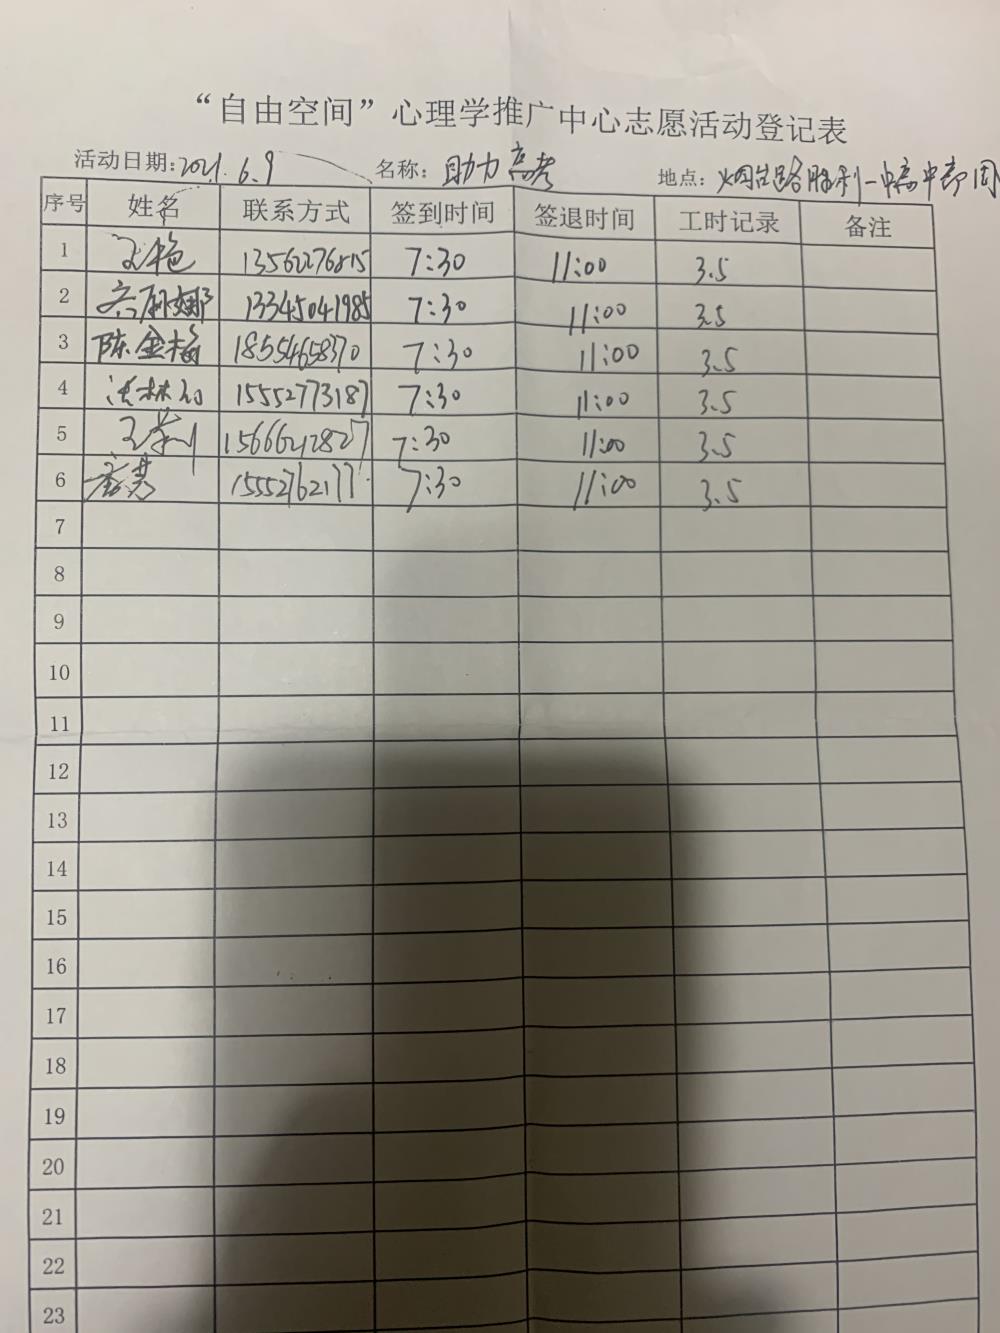 “自由空间”心理学推广中心志愿活动登记表
活动日期：2021.6.9 名称：助力高考 地点：烟台路胜利一中高中部周
序号 姓名 联系方式 签到时间 签退时间 工时记录 备注
1 王艳 13562276815 7:30 11:00 3.5
2 13345041985 7:30 11:00 3.5
3 陈金梅 18554658370 7:30 11:00 3.5
4 15552773187 7:30 11:00 3.5
5 15666212827 7:30 11:00 3.5
6 15552762177 7:30 11:00 3.5
7
8
9
10
11
12
13
14
15
16
17
18
19
20
21
22
23